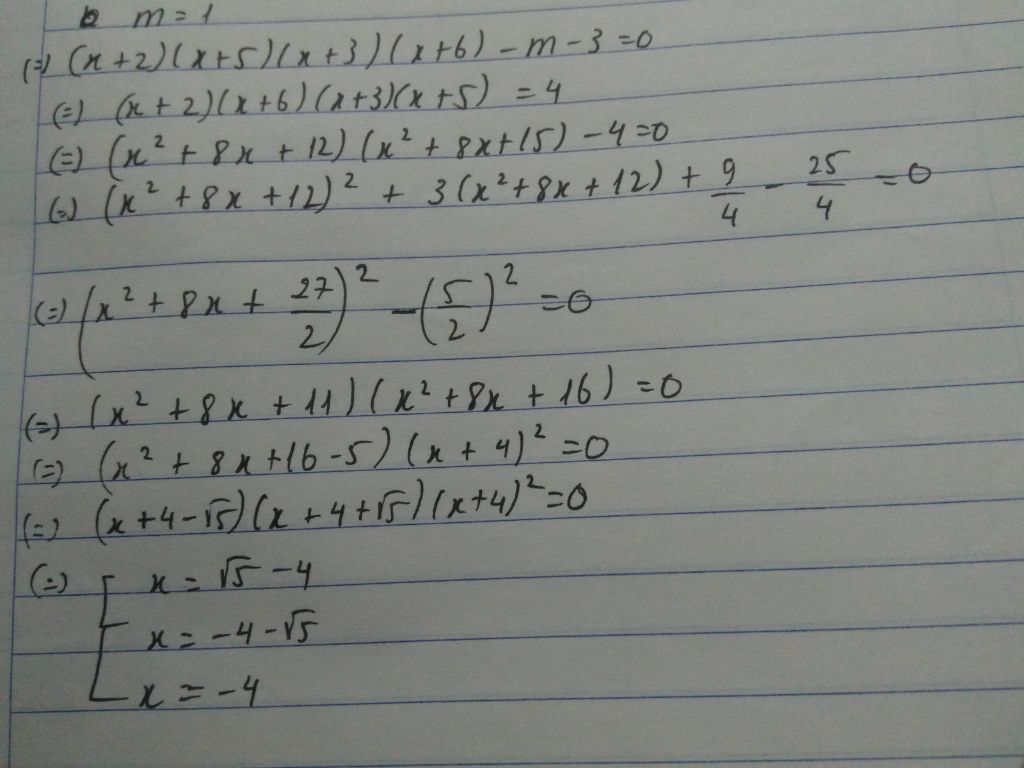 b m = 1
(=) (x+2)(x+5)(x+3)(x+6) - m - 3 = 0
(=) (x+2)(x+6)(x+3)(x+5) = 4
(=) (x² + 8x + 12)(x² + 8x + 15) - 4 = 0
(=) (x² + 8x + 12)² + 3(x² + 8x + 12) + 9/4 - 25/4 = 0
(=) (x² + 8x + 27/2)² - (5/2)² = 0
(=) (x² + 8x + 11)(x² + 8x + 16) = 0
(=) (x² + 8x + 16 - 5)(x + 4)² = 0
(=) (x + 4 - √5)(x + 4 + √5)(x + 4)² = 0
(=) [ x = √5 - 4
x = -4 - √5
x = -4